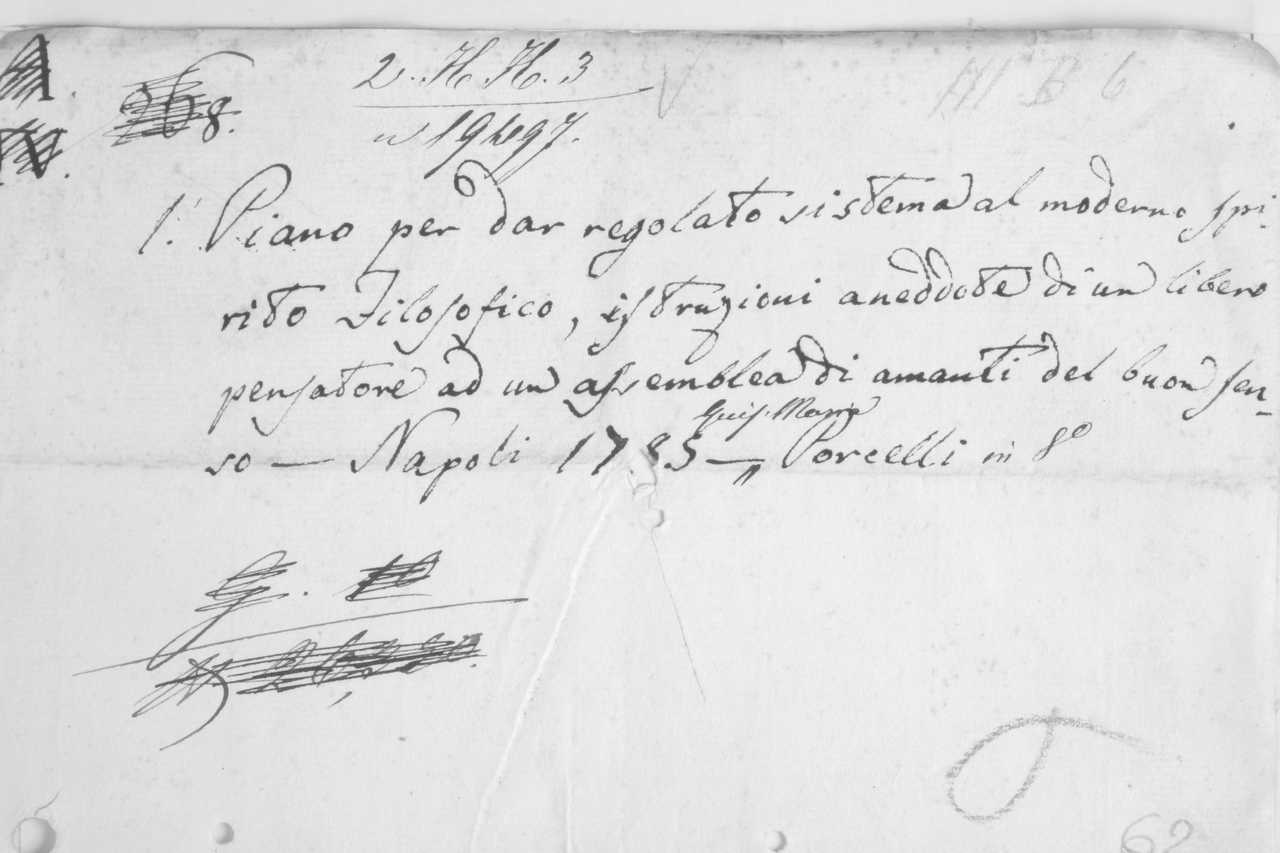 2. H H. 3
n 19497.
1. Piano per dar regolato sistema al moderno spi-
rito Filosofico, istruzioni aneddote di un libero
pensatore ad un assemblea di amanti del buon sen-
Gius. Maria
so — Napoli 1785 — Porcelli in 8º
62